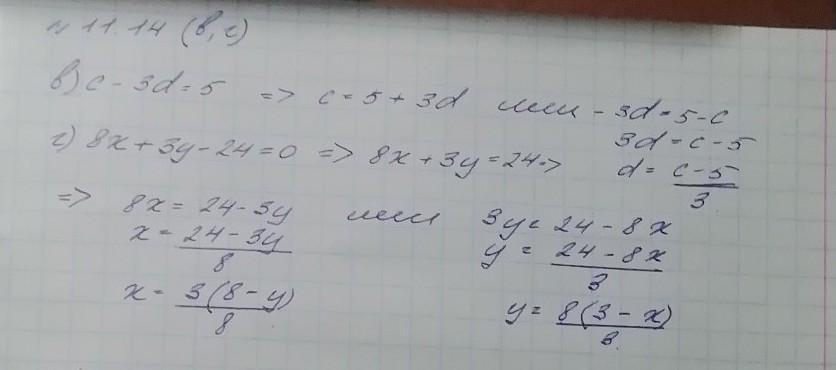 № 11.14 (в, г)
в) c - 3d = 5 => c = 5 + 3d или - 3d = 5 - c
3d = c - 5
d = c - 5 / 3
г) 8x + 3y - 24 = 0 => 8x + 3y = 24 =>
=> 8x = 24 - 3y или 3y = 24 - 8x
x = 24 - 3y / 8 y = 24 - 8x / 3
x = 3(8 - y) / 8 y = 8(3 - x) / 3.